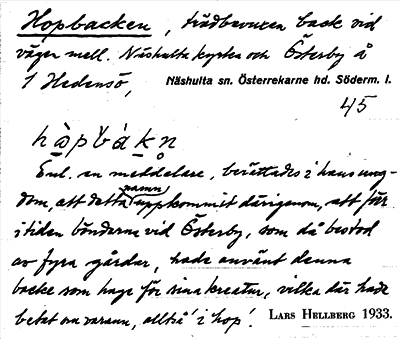 Hopbacken, trädbevuxen back vid
vägen mell. Näshulta kyrka och Österby å
1 Hedensö, Näshulta sn. Österrekarne hd. Söderm. l.
45
hàpbákn
Enl. en meddelare, berättades i hans ung-
dom, att detta namn uppkommit därigenom, att förr
i tiden bönderna vid Österby, som då bestod
av fyra gårdar, hade använt denna
backe som hage för sina kreatur, vilka där hade
betat om varann, alltså 'i hop'. LARS HELLBERG 1933.